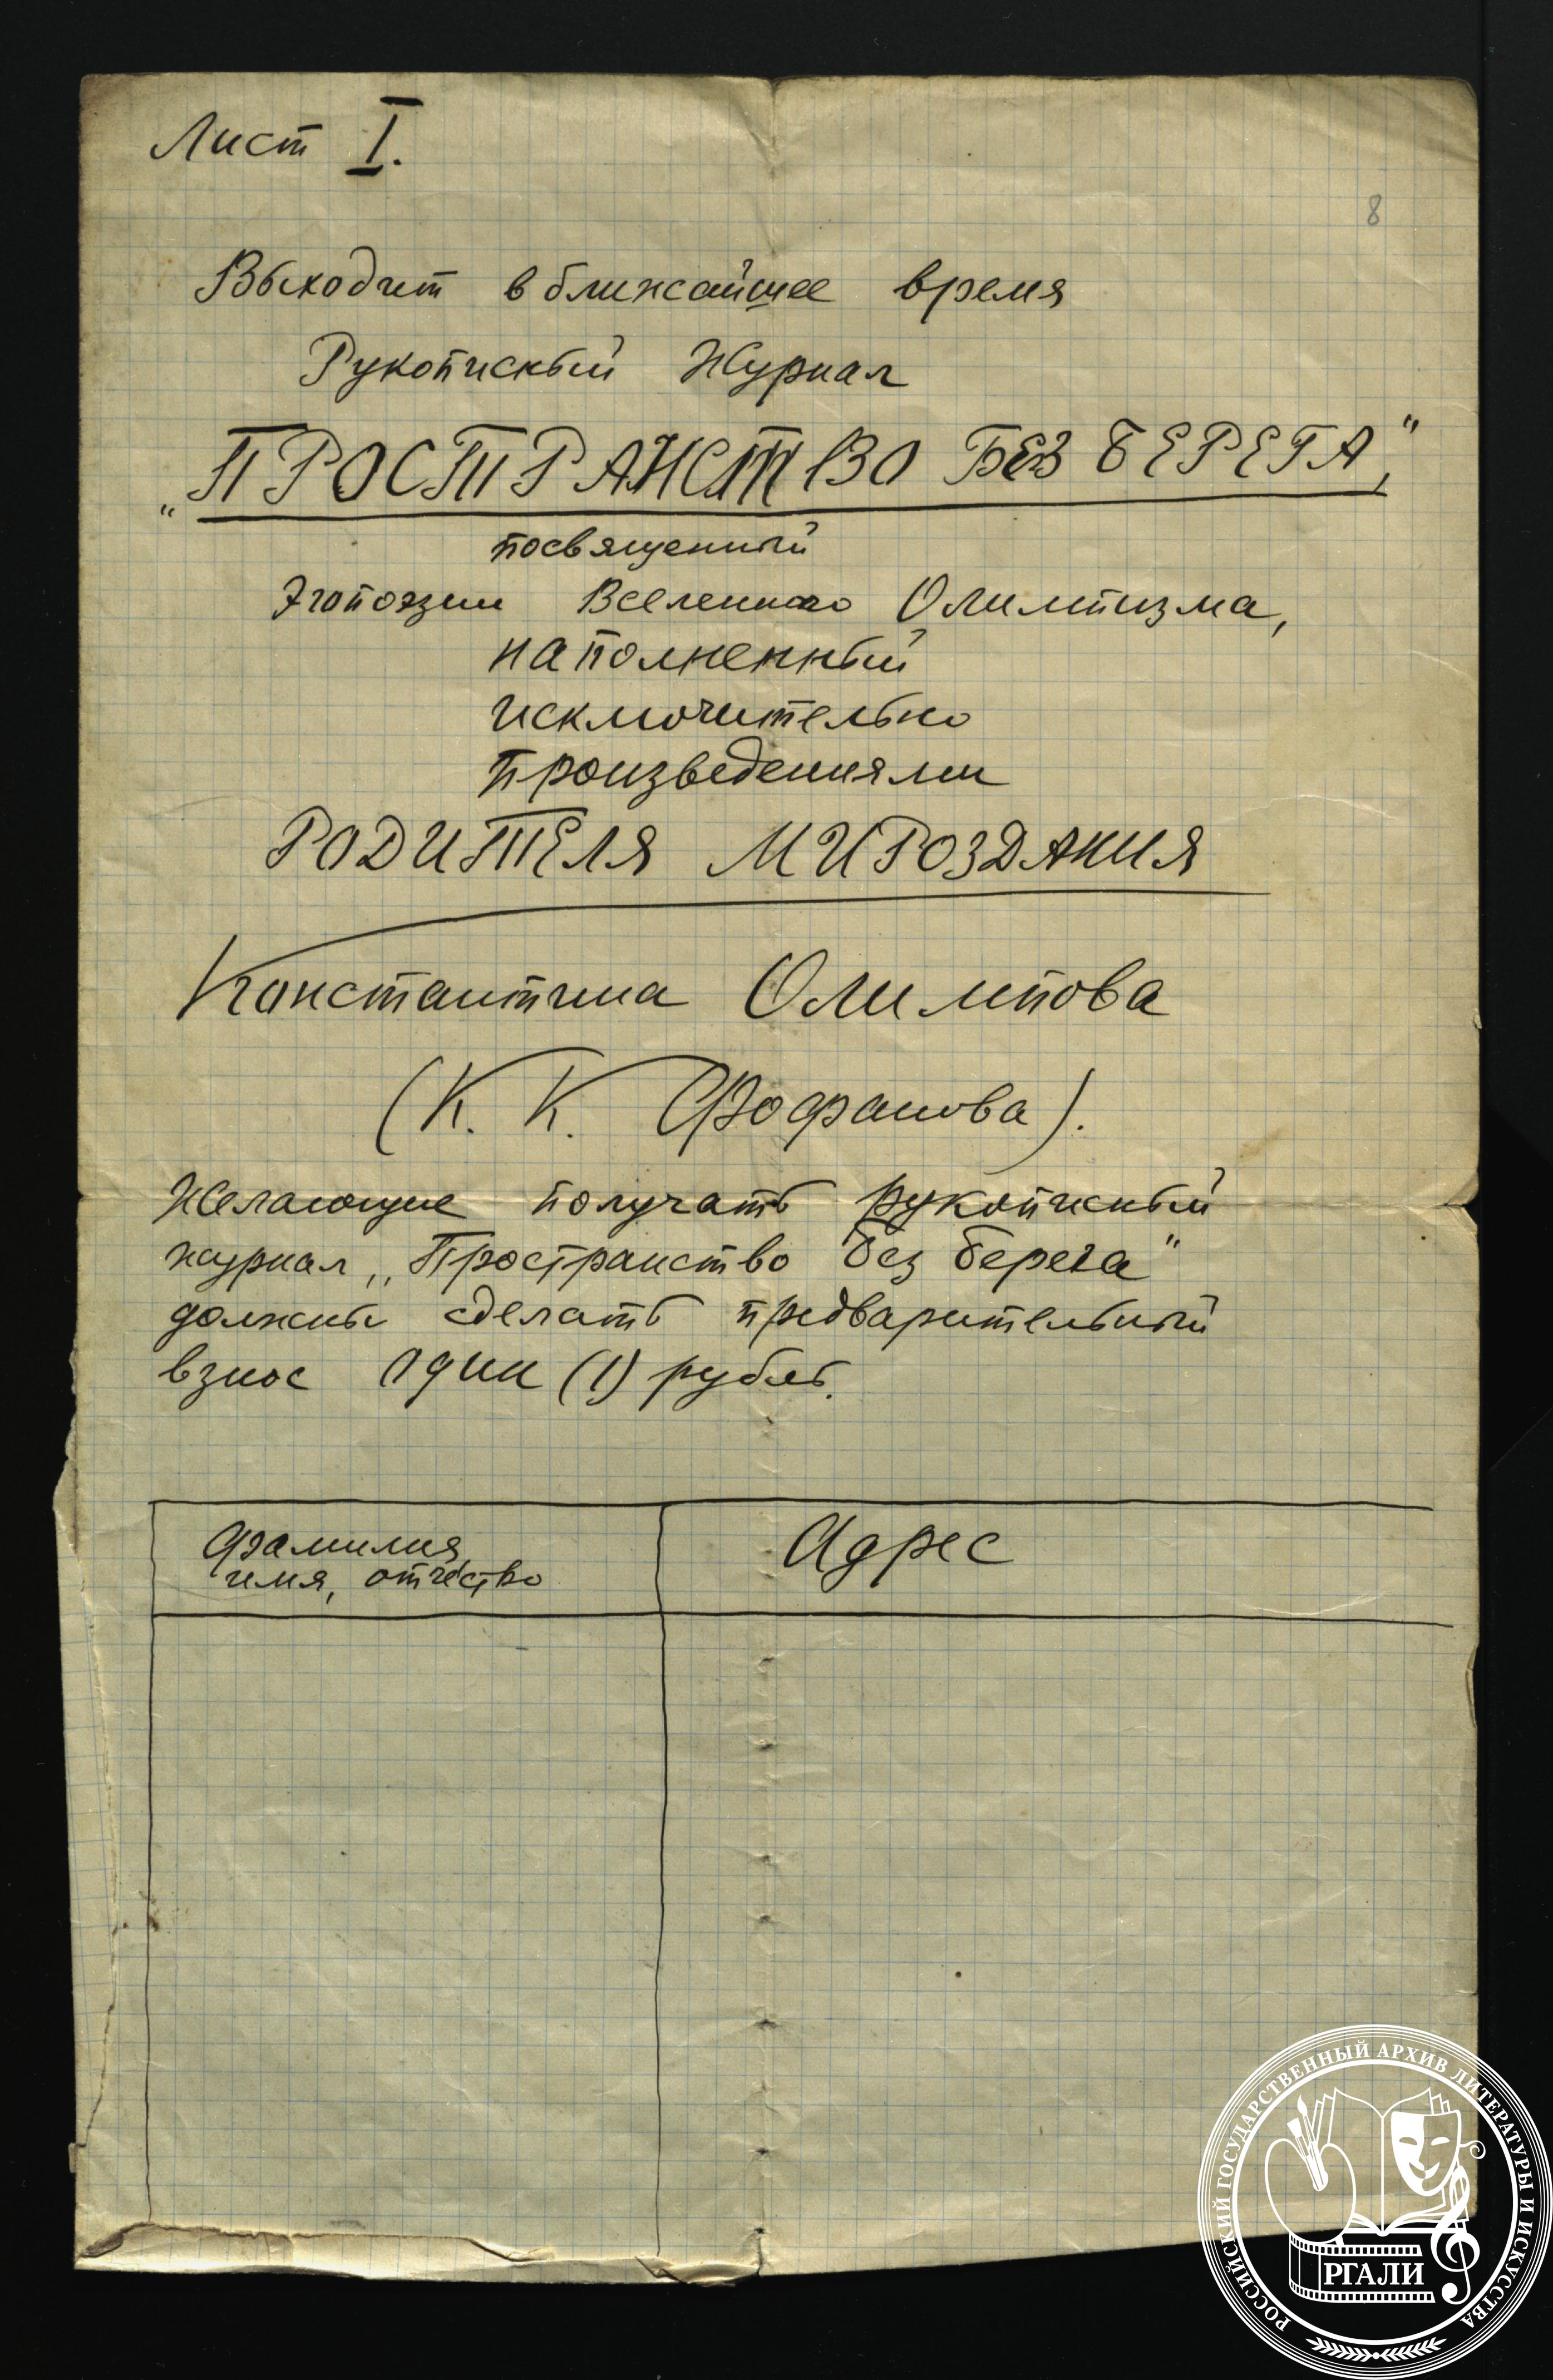 Лист I.
8
Выходит в ближайшее время
Рукописный Журнал
„ПРОСТРАНСТВО БЕЗ БЕРЕГА,"
посвященный
Эгопоэзии Вселенного Олимпизма,
наполненный
исключительно
произведениями
РОДИТЕЛЯ МИРОЗДАНИЯ
Константина Олимпова
(К. К. Фофанова).
Желающие получать рукописный
журнал „Пространство без берега"
должны сделать предварительный
взнос один (1) рубль.
Фамилия, имя, отчество
Адрес
РОССИЙСКИЙ ГОСУДАРСТВЕННЫЙ АРХИВ ЛИТЕРАТУРЫ И ИСКУССТВА
РГАЛИ